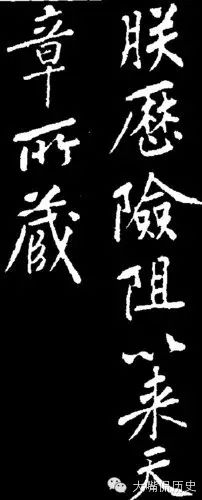 朕歷險阻以来天
章所蔵
大嘴侃历史